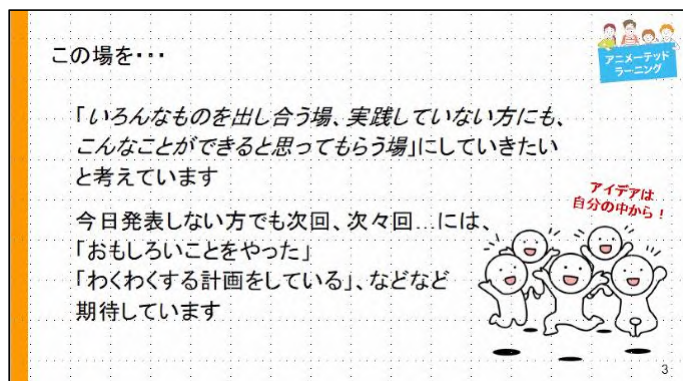 この場を・・・
アニメーテッド
ラーニング
「いろんなものを出し合う場、実践していない方にも、
こんなことができると思ってもらう場」にしていきたい
と考えています
アイデアは
自分の中から！
今日発表しない方でも次回、次々回…には、
「おもしろいことをやった」
「わくわくする計画をしている」、などなど
期待しています
3